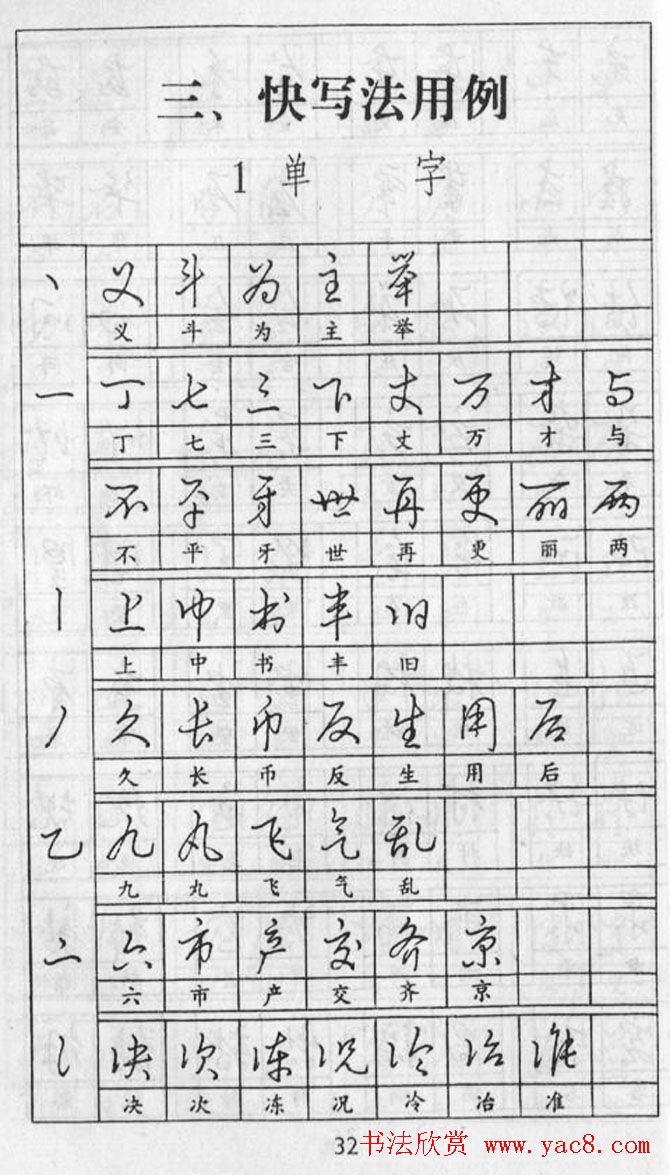 三、快写法用例
1 单 字
丶 义 斗 为 主 举
义 斗 为 主 举
一 丁 七 三 下 丈 万 才 与
丁 七 三 下 丈 万 才 与
不 平 牙 世 再 更 丽 两
不 平 牙 世 再 更 丽 两
丨 上 中 书 丰 旧
上 中 书 丰 旧
丿 久 长 币 反 生 用 后
久 长 币 反 生 用 后
乙 九 丸 飞 气 乱
九 丸 飞 气 乱
亠 六 市 产 交 齐 京
六 市 产 交 齐 京
冫 决 次 冻 况 冷 冶 准
决 次 冻 况 冷 冶 准
32 书法欣赏 www.yac8.com